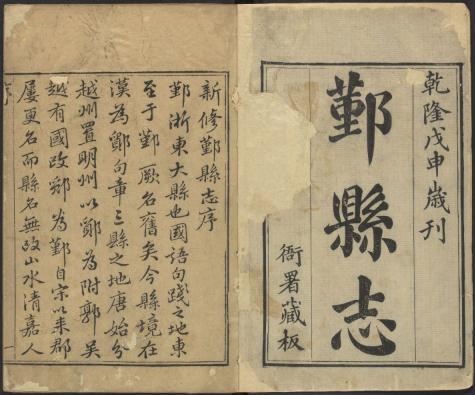 乾隆戊申歲刊
鄞縣志
衙署藏板
新修鄞縣志序
鄞浙東大縣也國語句踐之地東
至于鄞厥名舊矣今縣境在
漢為鄮句章三縣之地唐始分
越州置明州以鄮為附郭吳
越有國改鄮為鄞自宋以来郡
屢更名而縣名無改山水清嘉人
序
一